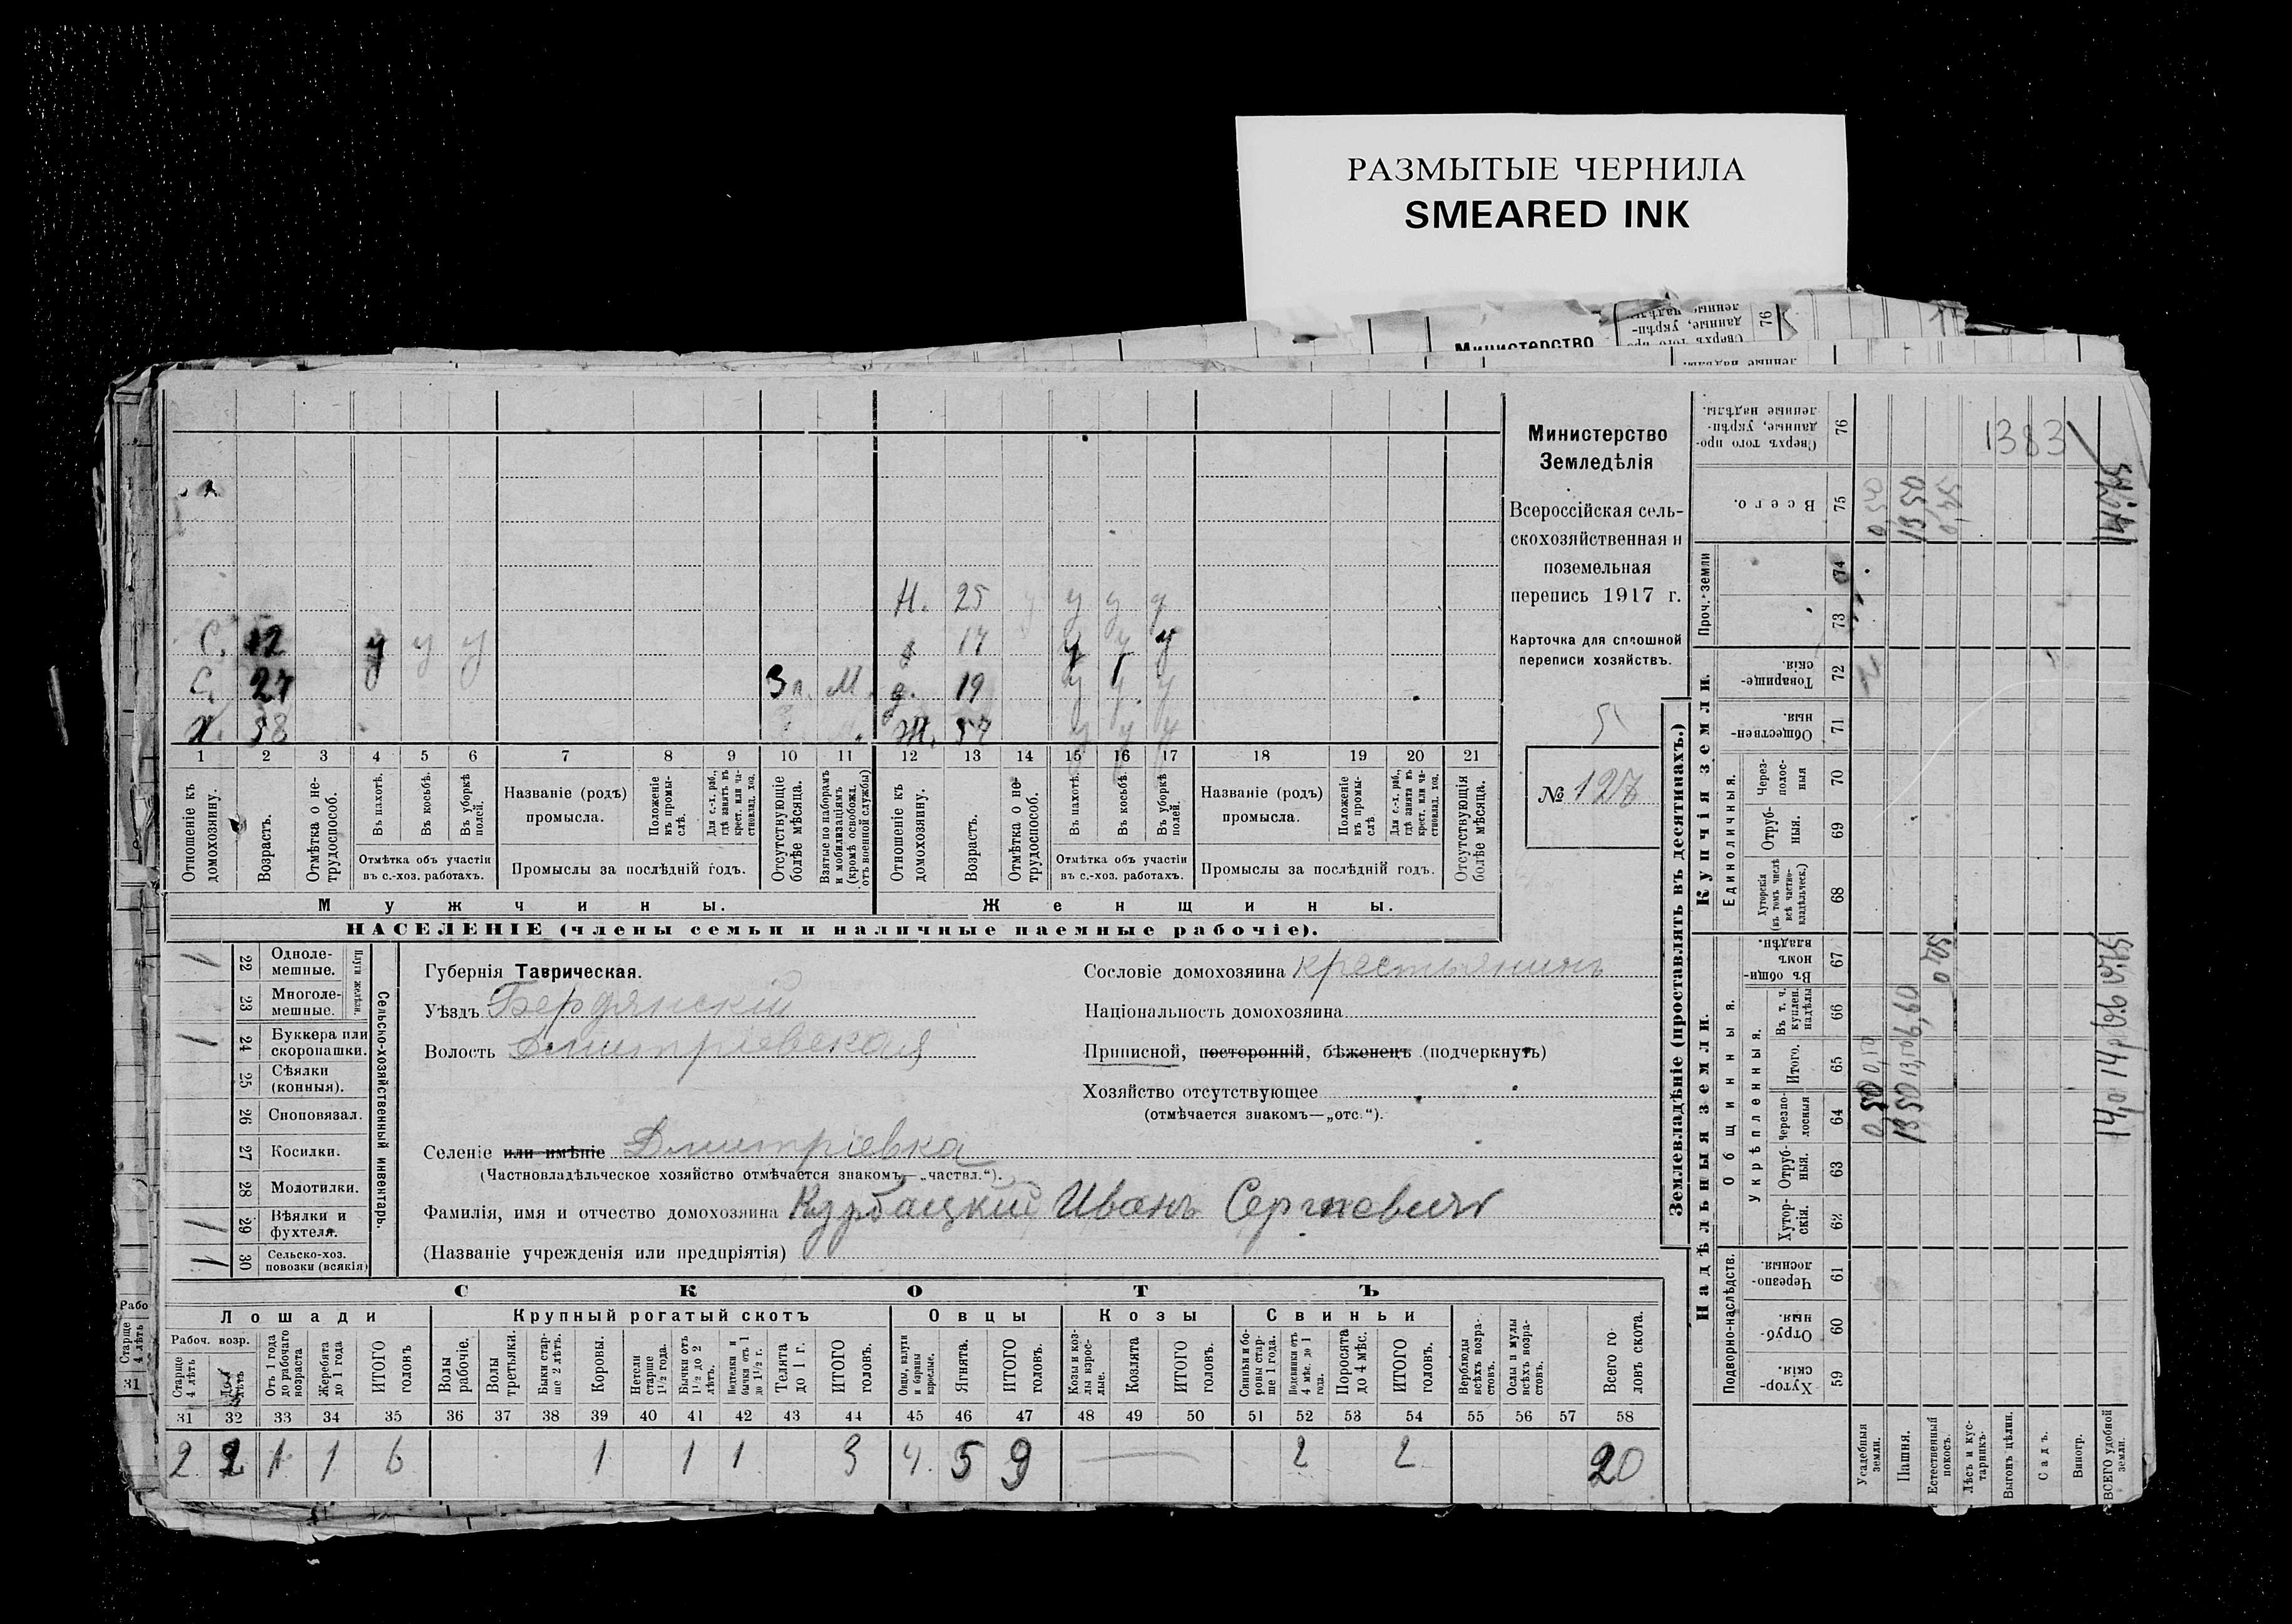 РАЗМЫТЫЕ ЧЕРНИЛА
SMEARED INK
Министерство
Земледѣлія
Всероссійская сель-
скохозяйственная и
поземельная
перепись 1917 г.
Карточка для сплошной
переписи хозяйствъ.
№ 128
Н. 25 у у у
С. 12 у у у 17 у у у
С. 27 Зп. М. д. 19 у у у
Х. 58 Ж. 57 у у у
1 2 3 4 5 6 7 8 9 10 11 12 13 14 15 16 17 18 19 20 21
Отношеніе къ домохозяину.
Возрастъ.
Отмѣтка о не-трудоспособ.
Въ пахотѣ.
Въ косьбѣ.
Въ уборкѣ полей.
Отмѣтка объ участіи въ с.-хоз. работахъ.
Названіе (родъ) промысла.
Положеніе въ промы-слѣ.
Для с.-х. раб., гдѣ занятъ въ крест. или ча-стновлад. хоз.
Промыслы за послѣдній годъ.
Отсутствующіе болѣе мѣсяца.
Взятые по наборамъ и мобилизаціямъ (кромѣ освобожд. отъ военной службы)
Отношеніе къ домохозяину.
Возрастъ.
Отмѣтка о не-трудоспособ.
Въ пахотѣ.
Въ косьбѣ.
Въ уборкѣ полей.
Отмѣтка объ участіи въ с.-хоз. работахъ.
Названіе (родъ) промысла.
Положеніе въ промы-слѣ
Для с.-х. раб., гдѣ занята въ крест. или ча-стновлад. хоз.
Промыслы за послѣдній годъ.
Отсутствующія болѣе мѣсяца.
Мужчины. Женщины.
НАСЕЛЕНІЕ (члены семьи и наличные наемные рабочіе).
22 Одноле-мешные.
23 Многоле-мешные.
Плуги желѣзн.
24 Буккера или скоропашки.
25 Сѣялки (конныя).
26 Сноповязал.
27 Косилки.
28 Молотилки.
29 Вѣялки и фухтеля.
30 Сельско-хоз. повозки (всякія)
Сельско-хозяйственный инвентарь.
Губернія Таврическая.
Уѣздъ Бердянскій
Волость Дмитріевская
Сословіе домохозяина крестьянинъ
Національность домохозяина
Приписной, посторонній, бѣженецъ (подчеркнуть)
Хозяйство отсутствующее
(отмѣчается знакомъ—„отс.“).
Селеніе или имѣніе Дмитріевка
(Частновладѣльческое хозяйство отмѣчается знакомъ—„частвл.“).
Фамилія, имя и отчество домохозяина Курбацкій Иванъ Сергѣевичъ
(Названіе учрежденія или предпріятія)
СКОТЪ
Лошади Крупный рогатый скотъ Овцы Козы Свиньи
Рабоч. возр.
Старше 4 лѣтъ
Отъ 1 года до рабочаго возраста
Жеребята до 1 года
ИТОГО головъ
Волы рабочіе.
Волы третьяки.
Быки стар-ше 2 лѣтъ.
Коровы.
Нетели старше 1½ года.
Бычки отъ 1½ до 2 лѣтъ.
Нетелки и бычки отъ 1 до 1½ г.
Телята до 1 г.
ИТОГО головъ.
Овцы, валухи и бараны взрослые.
Ягнята.
ИТОГО головъ.
Козы и коз-лы взрос-лые.
Козлята
ИТОГО головъ.
Свиньи и бо-ровы стар-ше 1 года.
Подсвинки отъ 4 мѣс. до 1 года.
Поросята до 4 мѣс.
ИТОГО головъ.
Верблюды всѣхъ возра-стовъ.
Ослы и мулы всѣхъ возра-стовъ.
Всего го-ловъ скота.
31 32 33 34 35 36 37 38 39 40 41 42 43 44 45 46 47 48 49 50 51 52 53 54 55 56 57 58
2 2 1 1 6 1 1 1 3 4 5 9 2 2 20
Землевладѣніе (проставлять въ десятинахъ.)
Надѣльныя земли. Купчія земли.
Подворно-наслѣдств.
Общинныя.
Укрѣпленныя.
Единоличныя.
Проч. земли
Хутор-скія. 59
Отруб-ныя. 60
Черезпо-лосныя. 61
Хутор-скія. 62
Отруб-ныя. 63
Черезпо-лосныя 64
Итого. 65
Въ т. ч. куплен. надѣлы 66
Въ общин-номъ владѣн. 67
Хуторскія (въ томъ числѣ всѣ частно-владѣльческ.) 68
Отруб-ныя. 69
Через-полос-ныя 70
Обществен-ныя. 71
Товарище-скія. 72
73
74
Всего. 75
Сверхъ того про-данные, укрѣп-ленные надѣлы. 76
Усадебныя земли.
Пашня.
Естественный покосъ.
Лѣсъ и кус-тарникъ.
Выгонъ цѣлин.
Садъ.
Виногр.
ВСЕГО удобной земли.
1383
Рабо
Старше 4 лѣтъ
31